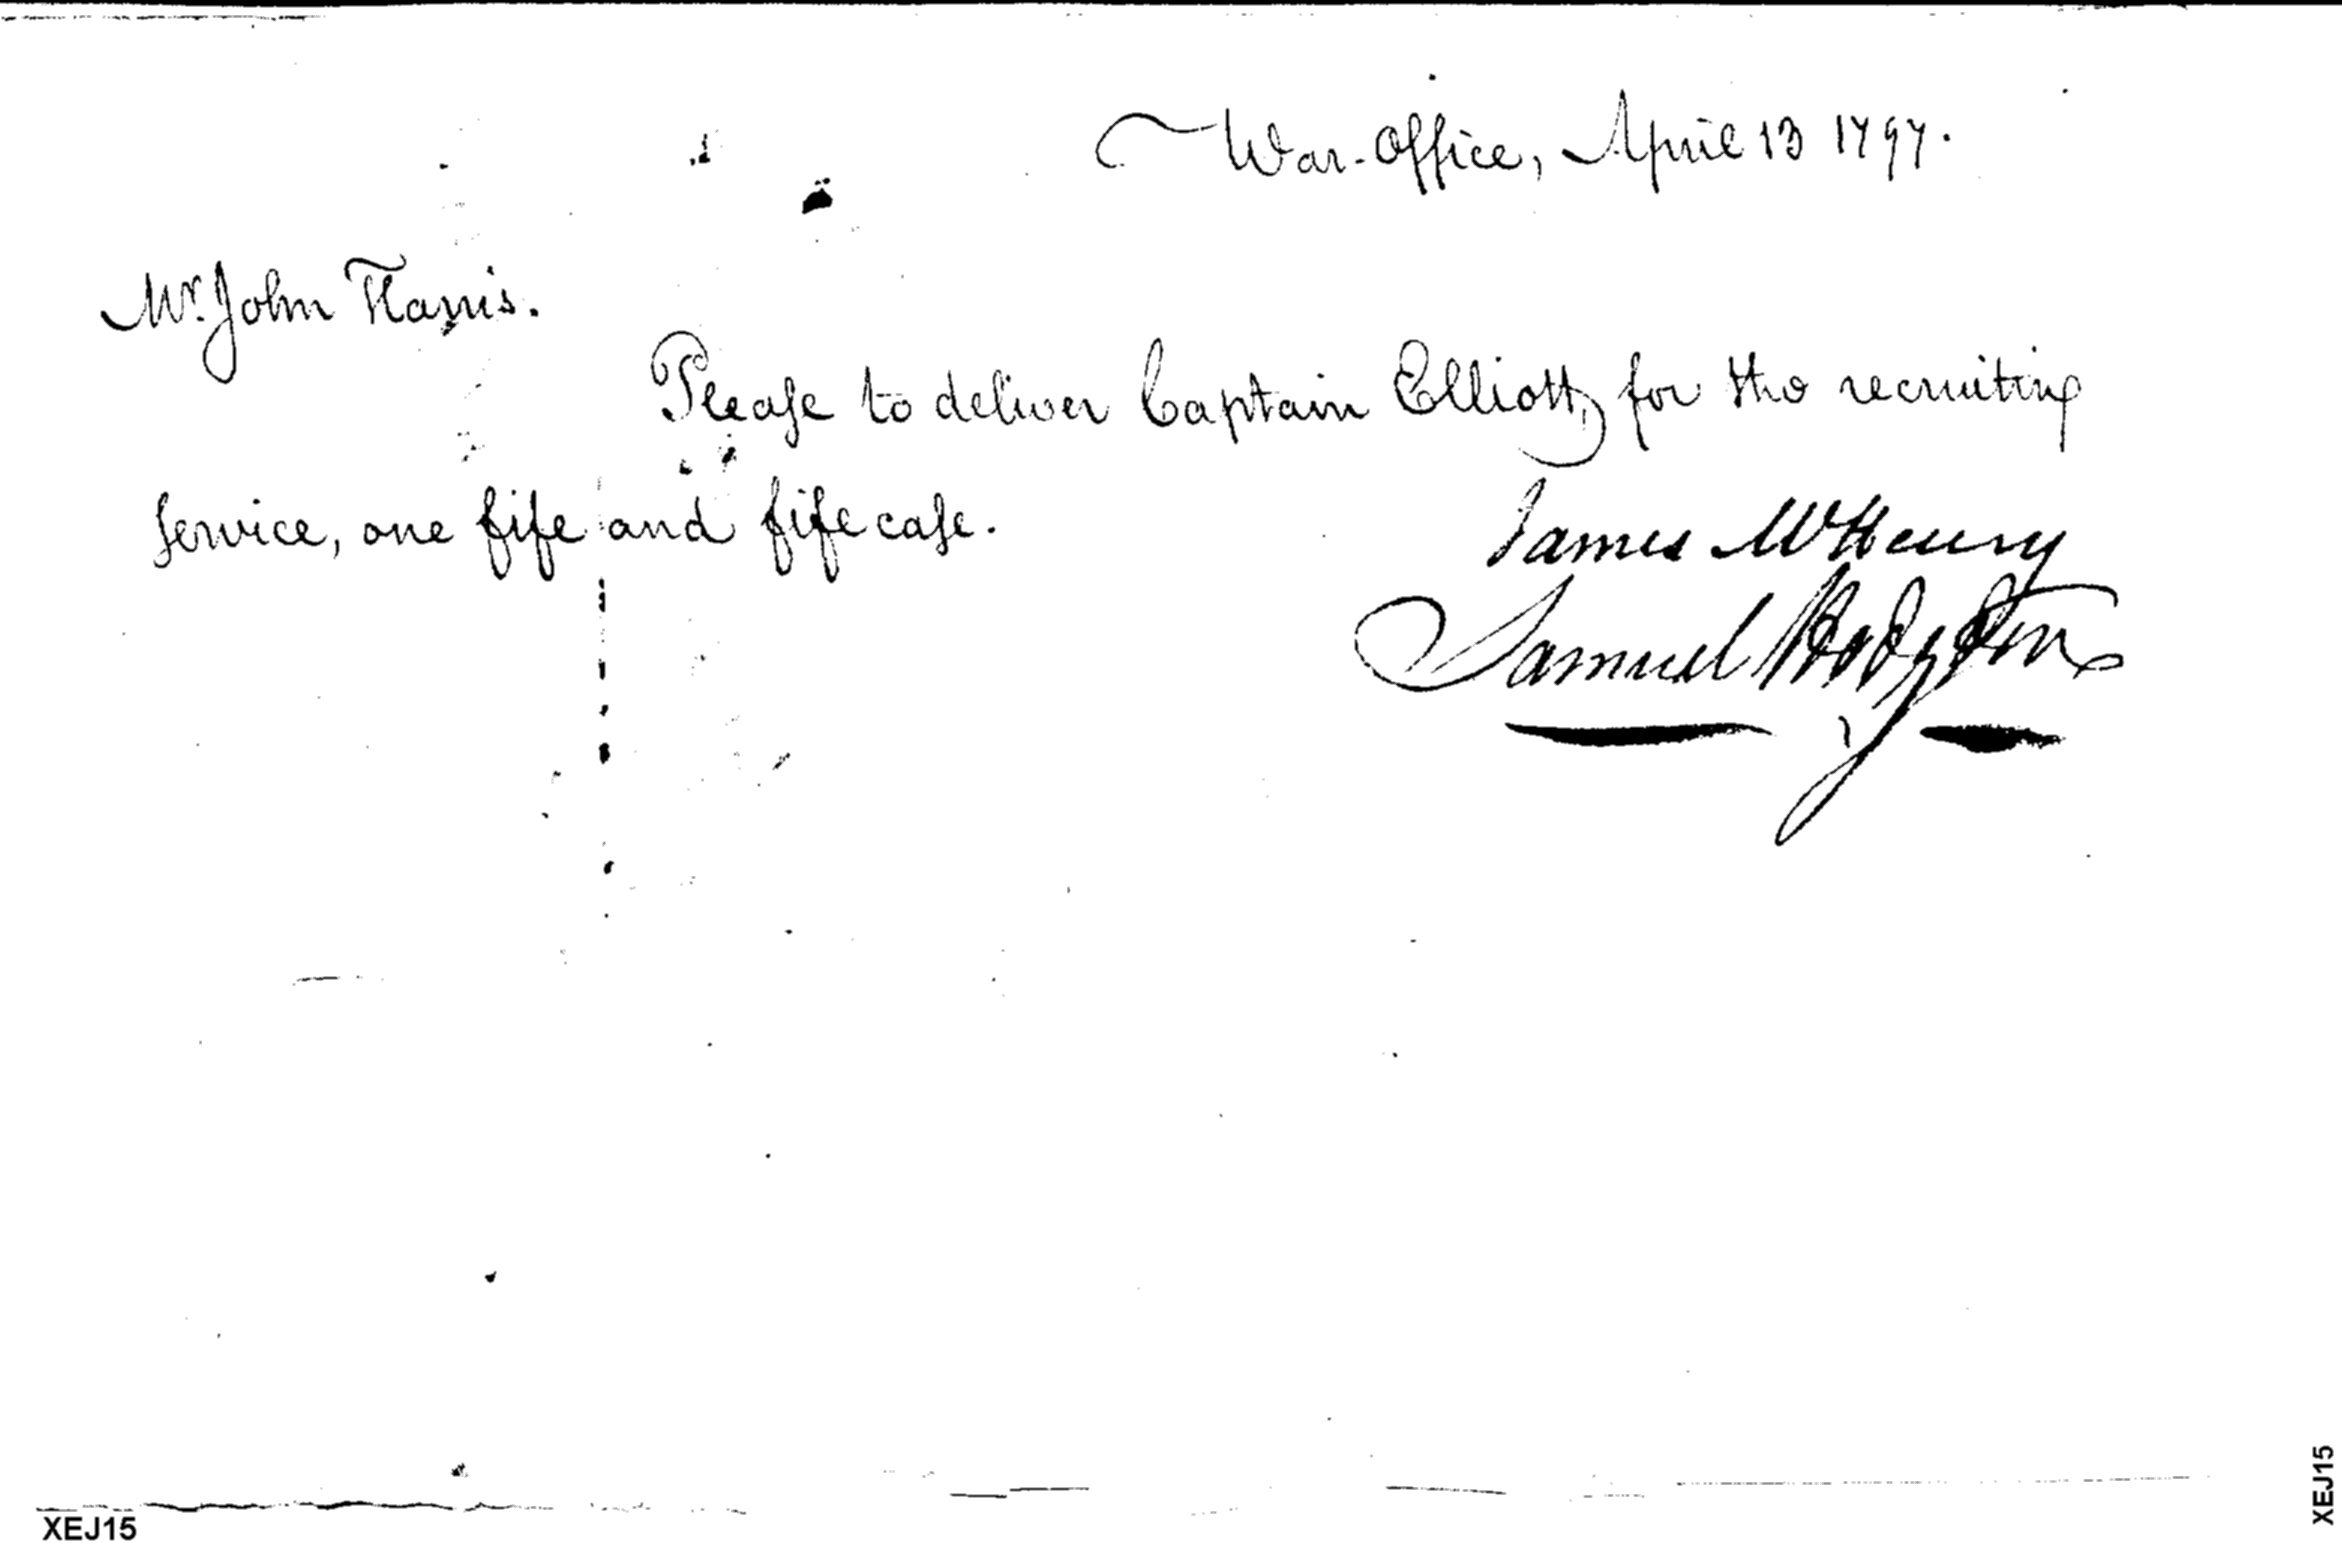 War-Office, April 13 1797.
Mr. John Harris.
Please to deliver Captain Elliott, for the recruiting
service, one fife and fife case.
James McHenry
Samuel Hodgdon
XEJ15
XEJ15